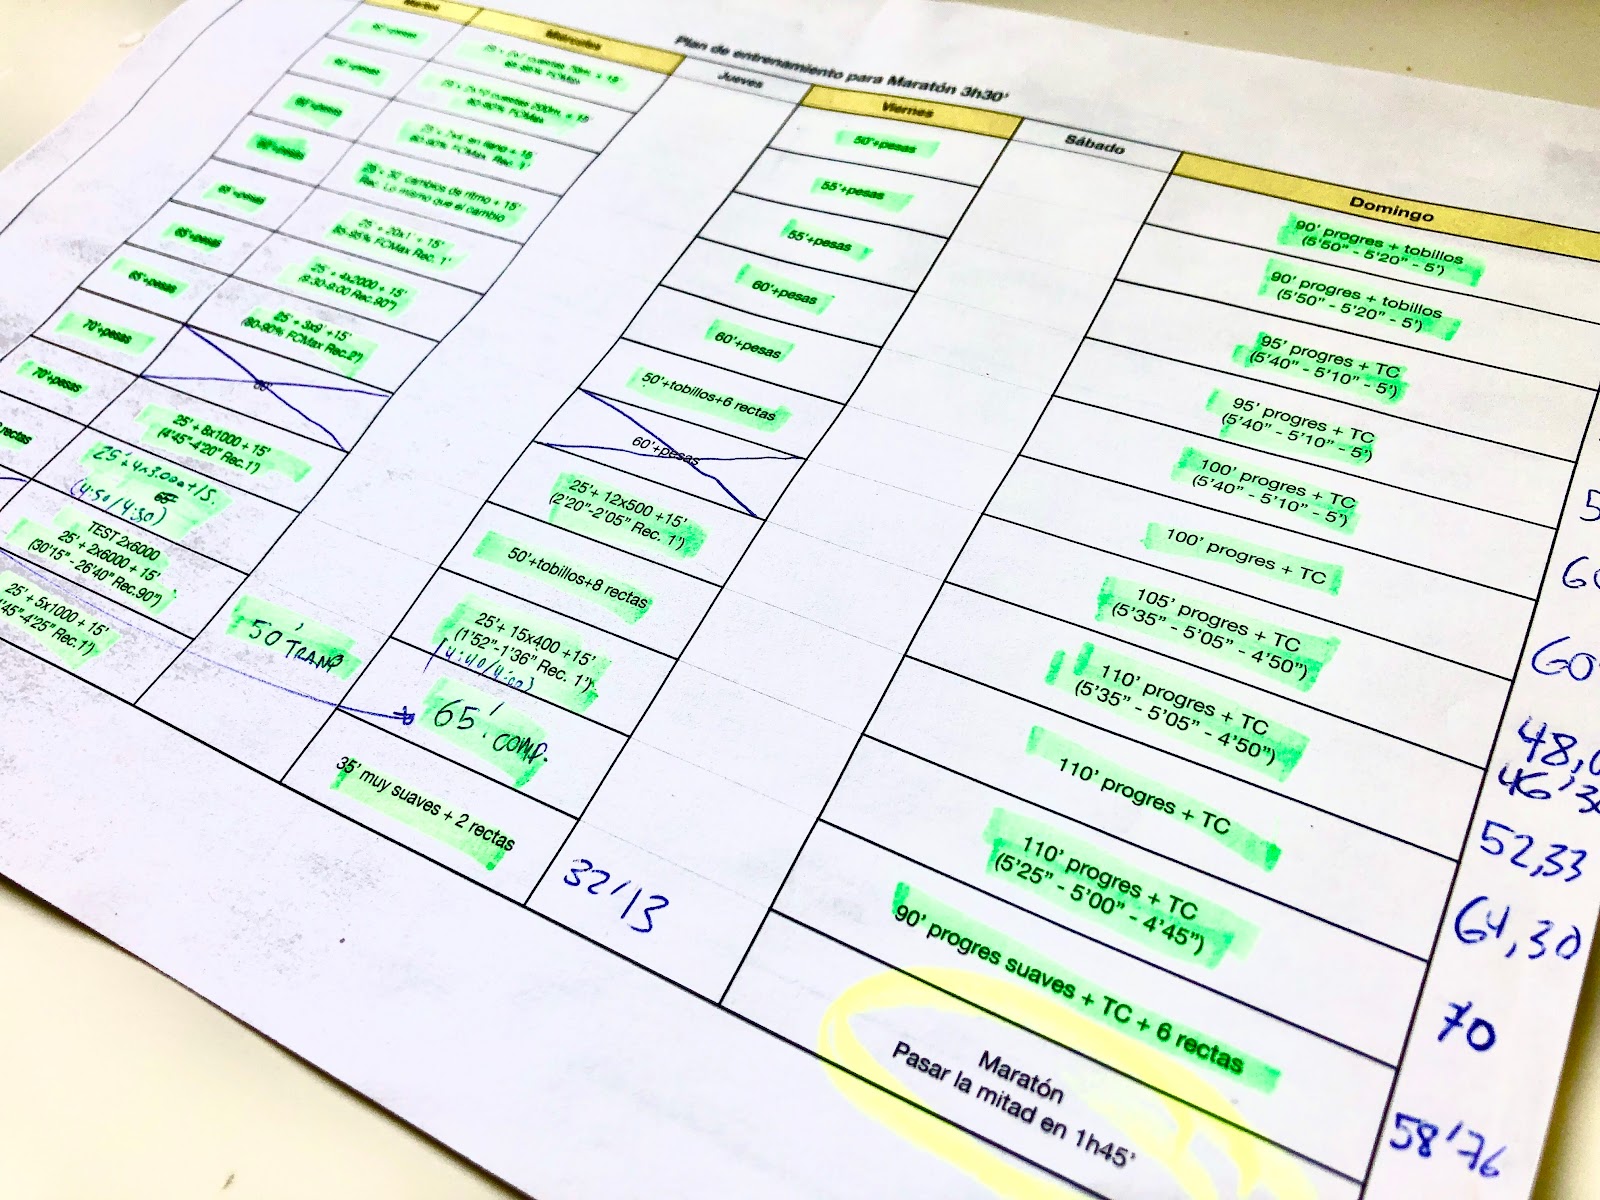 Plan de entrenamiento para Maratón 3h30'
Martes
65'+pesas
65'+pesas
65'+pesas
70'+pesas
70'+pesas
rectas
Miércoles
25' + 30' cambios de ritmo + 15'
Rec. Lo mismo que el cambio
25' + 20x1' + 15'
85-95% FCMax Rec. 1'
25' + 4x2000 + 15'
(9:30-9:00 Rec.90")
25' + 3x9' +15'
(80-90% FCMax Rec.2')
25' + 8x1000 + 15'
(4'45"-4'20" Rec.1')
25'+4x3.000+15.
65'
(4:50/4:30)
TEST 2x6000
25' + 2x6000 + 15'
(30'15" - 26'40" Rec.90")
25' + 5x1000 + 15'
4'45"-4'25" Rec.1')
Jueves
50' TRANP
Viernes
50'+pesas
55'+pesas
55'+pesas
60'+pesas
60'+pesas
50'+tobillos+6 rectas
60'+pesas
25'+ 12x500 +15'
(2'20"-2'05" Rec. 1')
50'+tobillos+8 rectas
25'+ 15x400 +15'
(1'52"-1'36" Rec. 1')
(4:40/4:00)
65' COMP.
35' muy suaves + 2 rectas
Sábado
32'13
Domingo
90' progres + tobillos
(5'50" - 5'20" - 5')
90' progres + tobillos
(5'50" - 5'20" - 5')
95' progres + TC
(5'40" - 5'10" - 5')
95' progres + TC
(5'40" - 5'10" - 5')
100' progres + TC
(5'40" - 5'10" - 5')
100' progres + TC
105' progres + TC
(5'35" - 5'05" - 4'50")
110' progres + TC
(5'35" - 5'05" - 4'50")
110' progres + TC
110' progres + TC
(5'25" - 5'00" - 4'45")
90' progres suaves + TC + 6 rectas
Maratón
Pasar la mitad en 1h45'
5
60
60
48,0
46'30
52,33
64,30
70
58'76